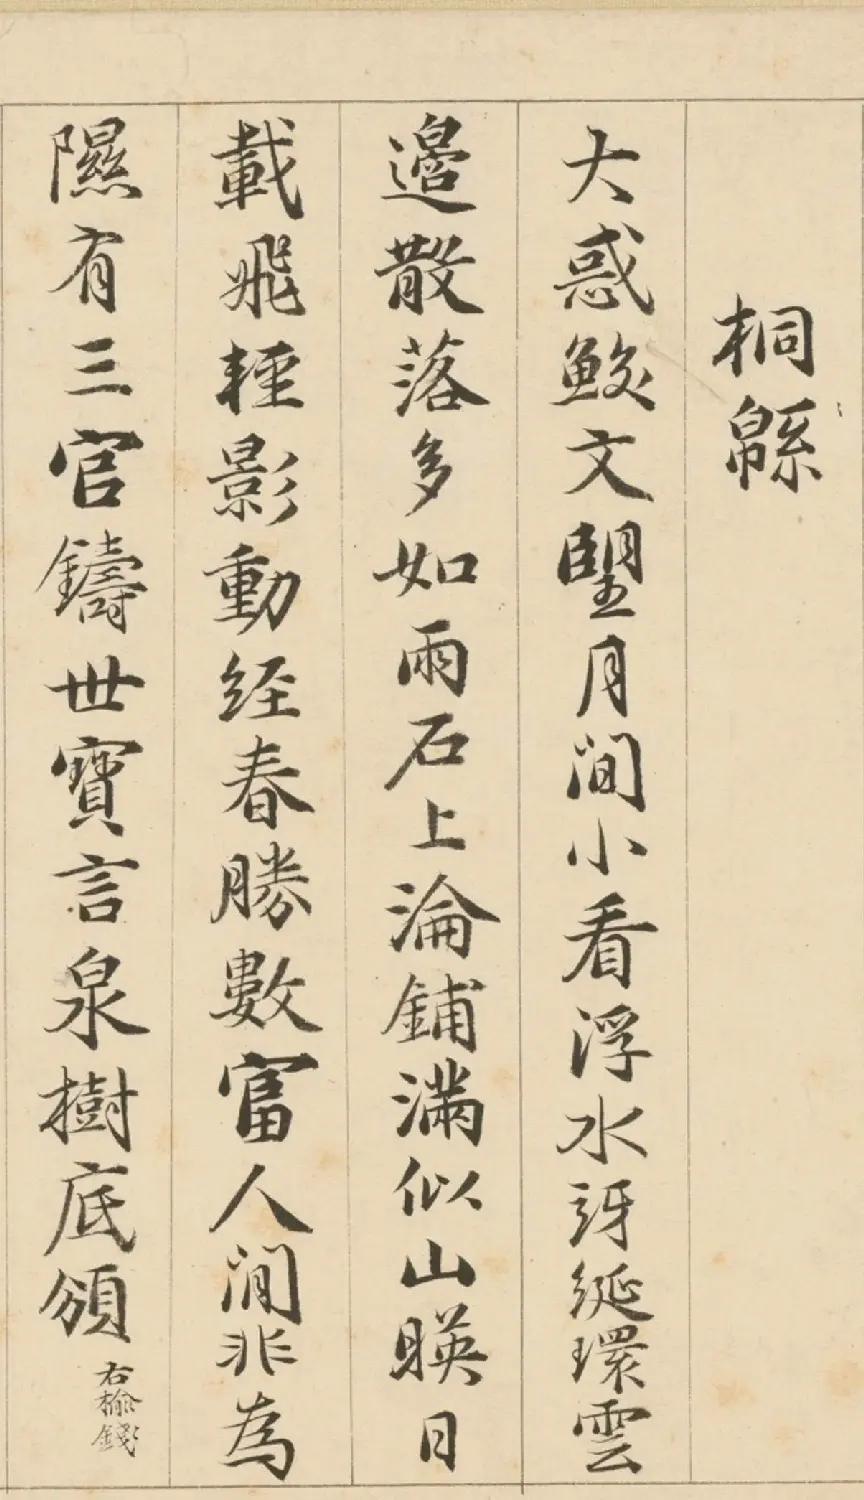 桐緜
大惑鮫文朢月間小看浮水訝綖環雲
邉散落多如雨石上淪鋪滿似山暎日
載飛輕影動經春勝數富人間非為
隰有三官鑄世寶言泉樹底頒
右榆錢